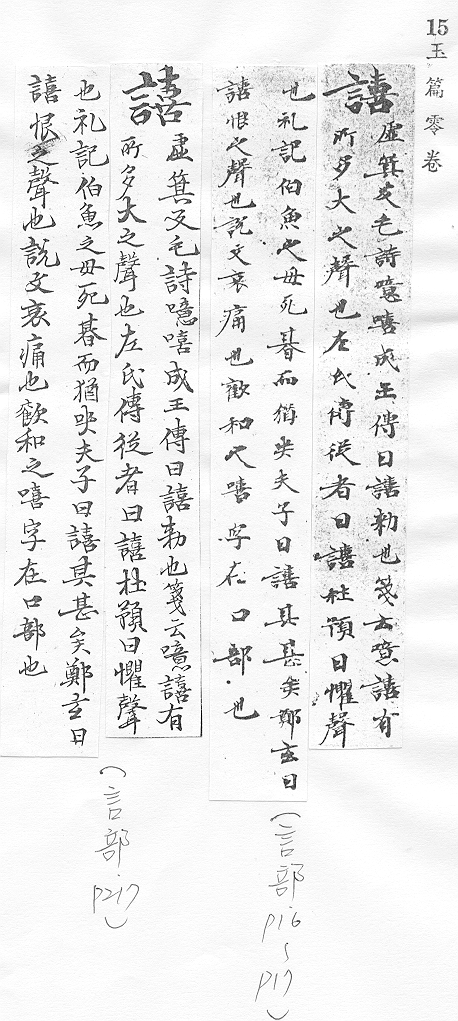 15
玉篇零卷
譆
虛箕反毛詩噫嘻成王傳曰譆勑也箋云噫譆有
所多大之聲也左氏傳從者曰譆杜預曰懼聲
也礼記伯魚之母死朞而猶哭夫子曰譆其甚矣鄭玄曰
譆恨之聲也說文哀痛也歡和之嘻字在口部也
(言部 P16~P17)
譆
虛箕反毛詩噫嘻成王傳曰譆勑也箋云噫譆有
所多大之聲也左氏傳從者曰譆杜預曰懼聲
也礼記伯魚之母死朞而猶哭夫子曰譆其甚矣鄭玄曰
譆恨之聲也說文哀痛也歡和之嘻字在口部也
(言部 P217)